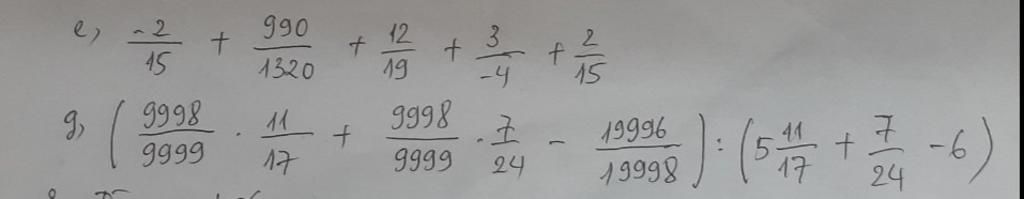 e, \frac{-2}{15} + \frac{990}{1320} + \frac{12}{19} + \frac{3}{-4} + \frac{2}{15}
g, ( \frac{9998}{9999} \cdot \frac{11}{17} + \frac{9998}{9999} \cdot \frac{7}{24} - \frac{19996}{19998} ) : ( 5\frac{11}{17} + \frac{7}{24} - 6 )